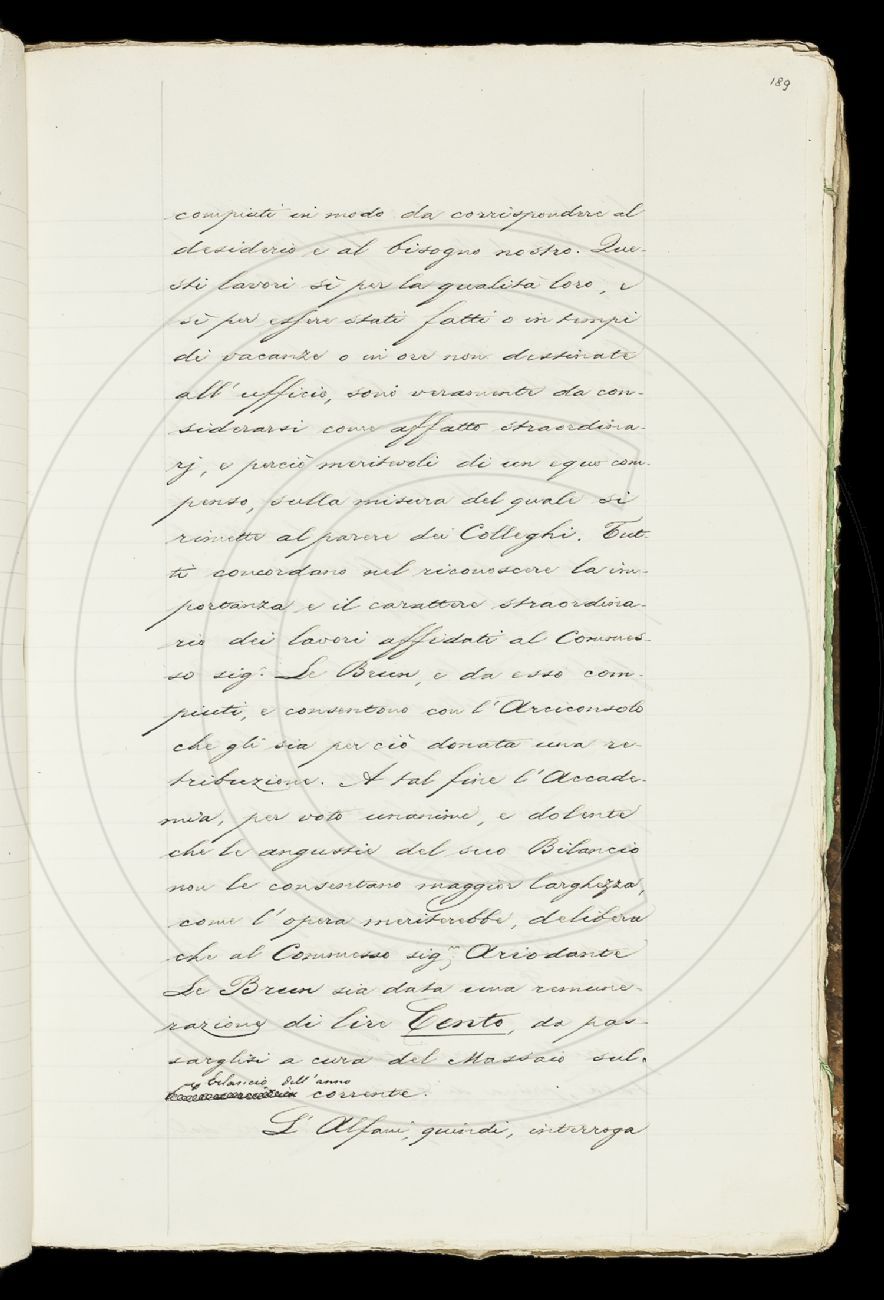 189
compiuti in modo da corrispondere al
desiderio e al bisogno nostro. Que-
sti lavori sì per la qualità loro, e
sì per essere stati fatti o in tempi
di vacanze o in ore non destinate
all'ufficio, sono veramente da con-
siderarsi come affatto straordina-
rj, e perciò meritevoli di un equo com-
penso, sulla misura del quale si
rimette al parere dei Colleghi. Tut-
ti concordano nel riconoscere la im-
portanza e il carattere straordina-
rio dei lavori affidati al Commes-
so sig.r Le Brun, e da esso com-
piuti, e consentono con l'Arciconsolo
che gli sia per ciò donata una re-
tribuzione. A tal fine l'Accade-
mia, per voto unanime, e dolente
che le angustie del suo Bilancio
non le consentano maggior larghezza,
come l'opera meriterebbe, delibera
che al Commesso sig.r Ariodante
Le Brun sia data una remune-
razione di lire Cento, da pas-
sarglisi a cura del Massaio sul-
bilancio dell'anno
corrente.
L'Alfani, quindi, interroga